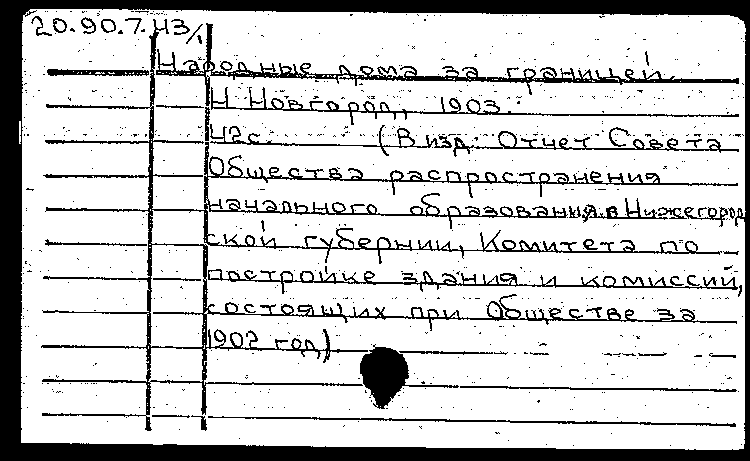 20.90.7.43/1
Народные дома за границей.
Н Новгород, 1903.
42с. (В изд: Отчет Совета
Общества распространения
начального образования в Нижегород
ской губернии, Комитета по
постройке здания и комиссий,
состоящих при Обществе за
1902 год)